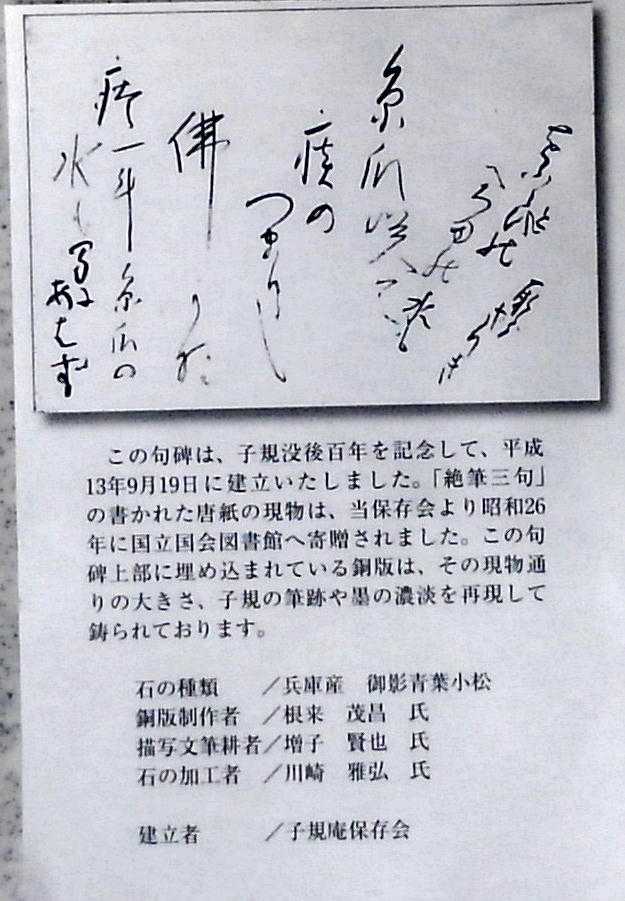 糸瓜咲て
痰の
つまりし
佛かな
痰一斗糸瓜の
水も
間に
あはず
この句碑は、子規没後百年を記念して、平成
13年9月19日に建立いたしました。「絶筆三句」
の書かれた唐紙の現物は、当保存会より昭和26
年に国立国会図書館へ寄贈されました。この句
碑上部に埋め込まれている銅版は、その現物通
りの大きさ、子規の筆跡や墨の濃淡を再現して
鋳られております。
石の種類　／兵庫産　御影青葉小松
銅版制作者　／根来　茂昌　氏
描写文筆耕者／増子　賢也　氏
石の加工者　／川崎　雅弘　氏
建立者　／子規庵保存会